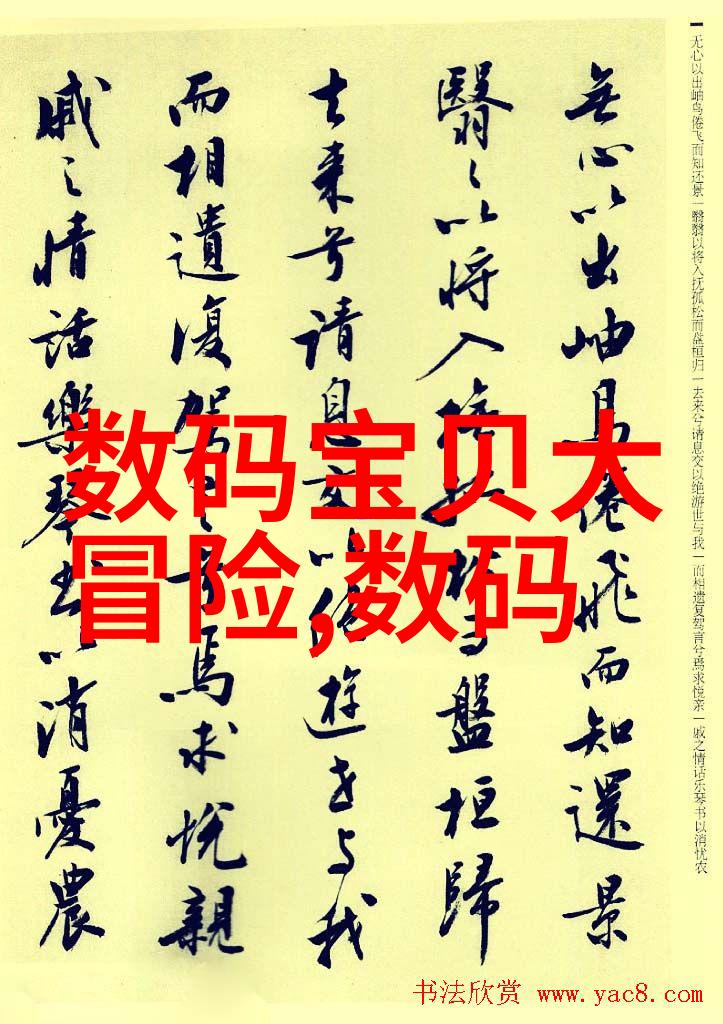 无心以出岫鸟倦飞而知还景一翳翳以将入抚孤松而盘桓归一去来兮请息交以绝游世与我一而相遗复驾言兮焉求悦亲一戚之情话乐琴书以消忧农
無心以出岫鳥倦飛而知還景
翳々以将入撫孤松而盤桓歸
去来兮请息交以絶遊世与我
而相遺復駕言兮焉求悦親
戚之情話樂琴書以消憂農
数码宝贝大
冒险,数码
书法欣赏 www.yac8.com